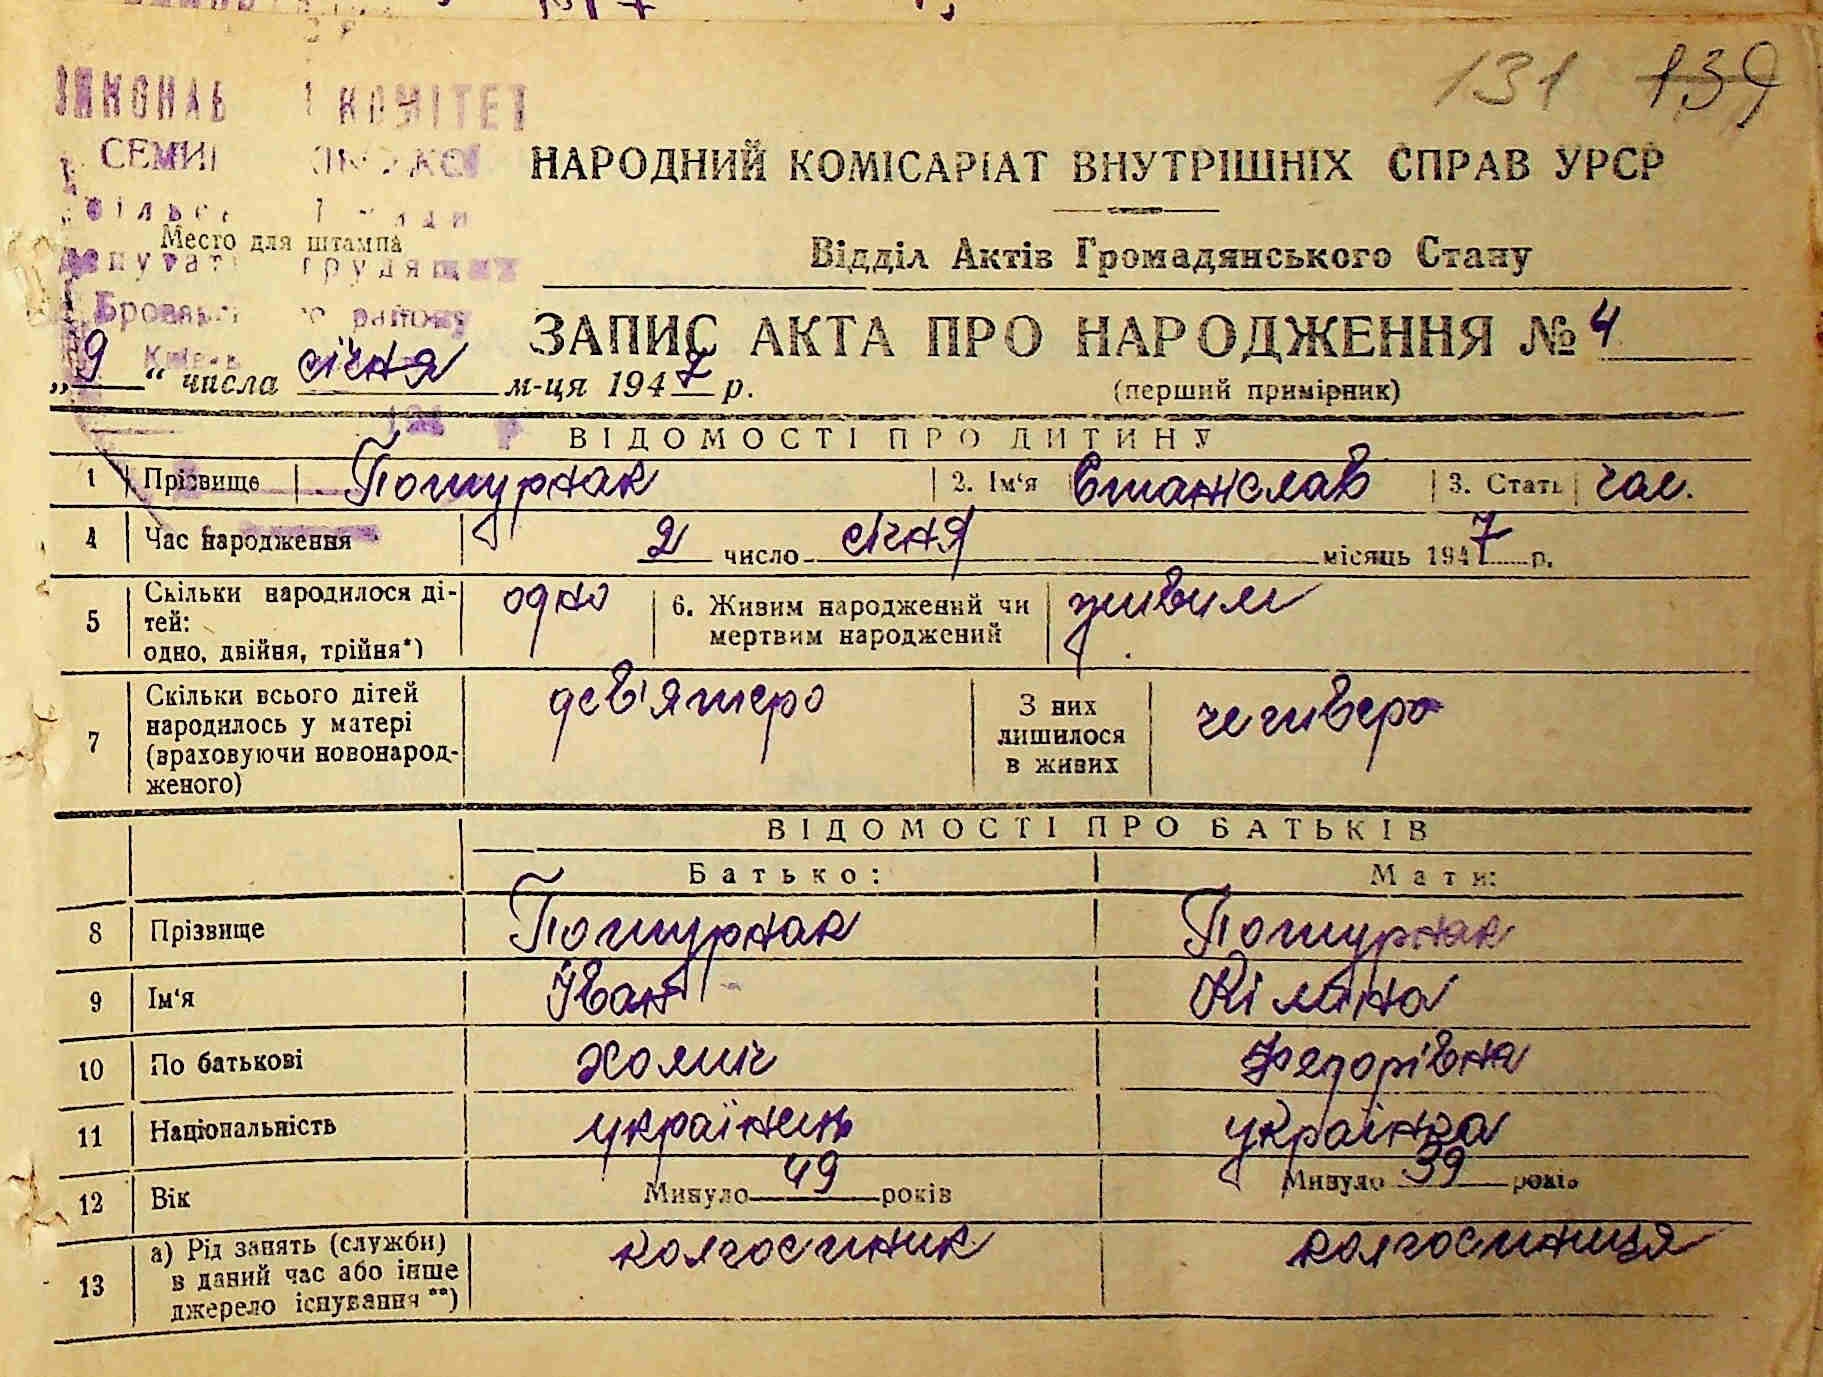 131 139
ВИКОНАВ КОМІТЕТ
СЕМИ
НАРОДНИЙ КОМІСАРІАТ ВНУТРІШНІХ СПРАВ УРСР
Место для штампа
депутат трудящих
Відділ Актів Громадянського Стану
району
ЗАПИС АКТА ПРО НАРОДЖЕННЯ № 4
„9“ числа січня м-ця 1947 р.
(перший примірник)
ВІДОМОСТІ ПРО ДИТИНУ
1 Прізвище Потурнак 2. Ім'я Станіслав 3. Стать чол.
4 Час народження 2 число січня місяць 1947 р.
5 Скільки народилося ді-
тей:
одно, двійня, трійня*) одно 6. Живим народжений чи
мертвим народжений живим
7 Скільки всього дітей
народилось у матері
(враховуючи новонарод-
женого) дев'ятеро З них
лишилося
в живих четверо
ВІДОМОСТІ ПРО БАТЬКІВ
Батько: Мати:
8 Прізвище Потурнак Потурнак
9 Ім'я Іван
10 По батькові Хомич Федорівна
11 Національність українець українка
12 Вік Минуло 49 років Минуло 39 років
13 а) Рід занять (служби)
в даний час або інше
джерело існування **) колгоспник колгоспниця